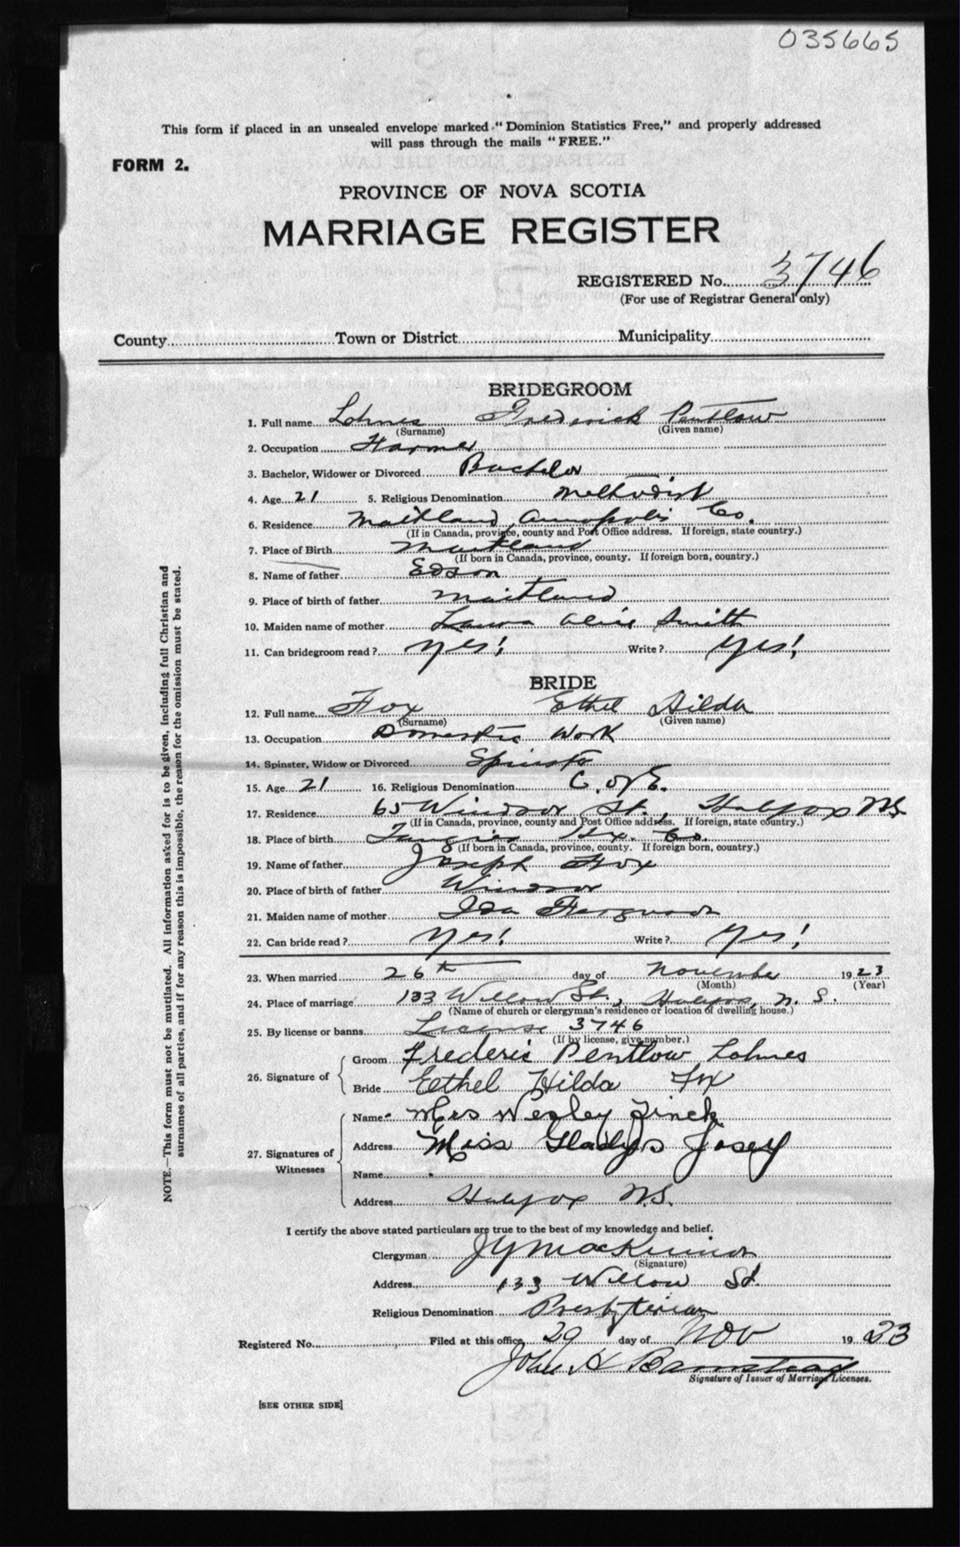 035665
This form if placed in an unsealed envelope marked "Dominion Statistics Free," and properly addressed
will pass through the mails "FREE."
FORM 2.
PROVINCE OF NOVA SCOTIA
MARRIAGE REGISTER
REGISTERED No. 3746
(For use of Registrar General only)
County Town or District Municipality
BRIDEGROOM
1. Full name Lohnes Frederick Pentlow
(Surname) (Given name)
2. Occupation Farmer
3. Bachelor, Widower or Divorced Bachelor
4. Age 21 5. Religious Denomination Methodist
6. Residence Maitland, Annapolis Co.
(If in Canada, province, county and Post Office address. If foreign, state country.)
7. Place of Birth Maitland
(If born in Canada, province, county. If foreign born, country.)
8. Name of father Edson
9. Place of birth of father Maitland
10. Maiden name of mother Laura Alice Smith
11. Can bridegroom read? Yes! Write? Yes!
BRIDE
12. Full name Fox Ethel Hilda
(Surname) (Given name)
13. Occupation Domestic Work
14. Spinster, Widow or Divorced Spinster
15. Age 21 16. Religious Denomination C. of E.
17. Residence 65 Windsor St., Halifax N.S.
(If in Canada, province, county and Post Office address. If foreign, state country.)
18. Place of birth Tangier Hx. Co.
(If born in Canada, province, county. If foreign born, country.)
19. Name of father Joseph Fox
20. Place of birth of father Windsor
21. Maiden name of mother Ida Ferguson
22. Can bride read? Yes! Write? Yes!
23. When married 26th day of November 1923
(Month) (Year)
24. Place of marriage 133 Willow St., Halifax, N. S.
(Name of church or clergyman's residence or location of dwelling house.)
25. By license or banns License 3746
(If by license, give number.)
26. Signature of Groom Frederic Pentlow Lohnes
Bride Eethel Hilda Fox
27. Signatures of Witnesses Name Mrs Wesley Zinck
Address Miss Gladys Josey
Name
Address Halifax N.S.
I certify the above stated particulars are true to the best of my knowledge and belief.
Clergyman J Y MacKinnon
(Signature)
Address 133 Willow St.
Religious Denomination Presbyterian
Registered No. Filed at this office 29 day of Nov 1923
John H Barnstead
Signature of Issuer of Marriage Licenses.
[SEE OTHER SIDE]
NOTE.—This form must not be mutilated. All information asked for is to be given, including full Christian and
surnames of all parties, and if for any reason this is impossible, the reason for the omission must be stated.